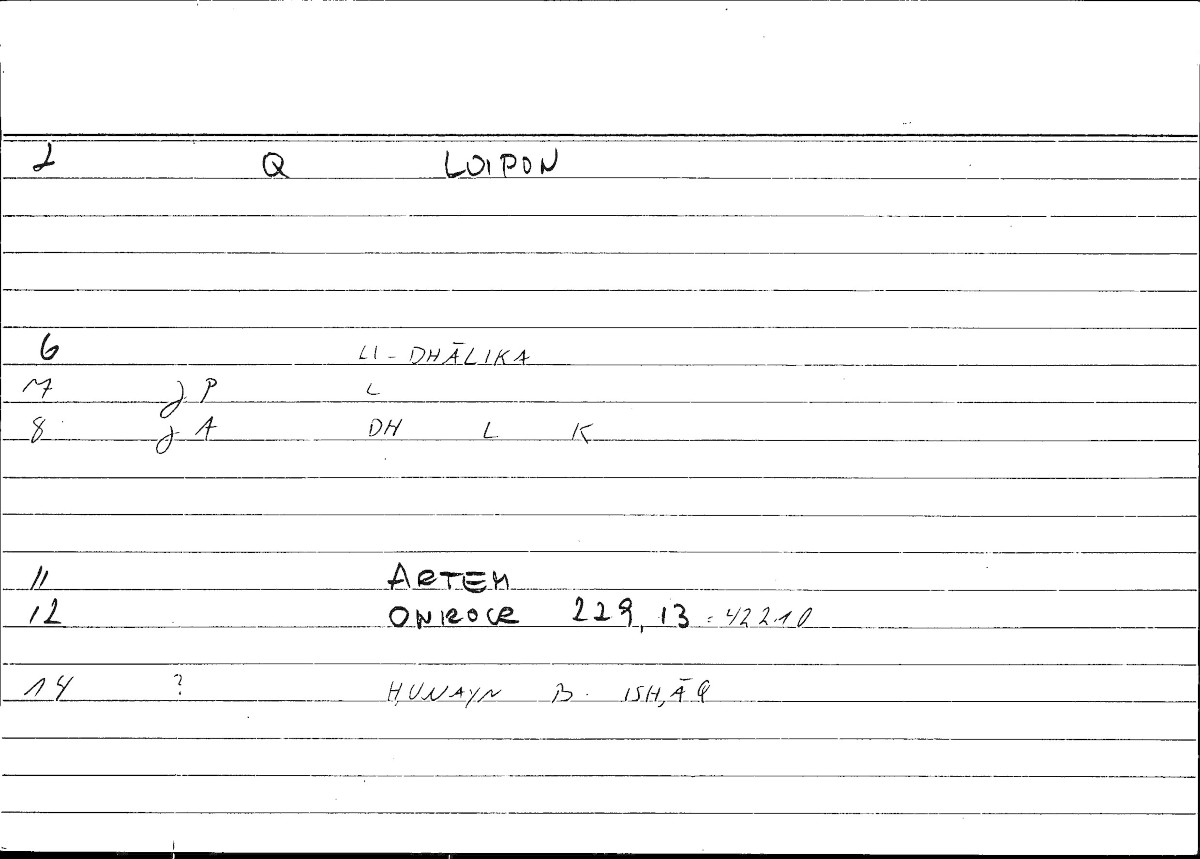 2 Q LOIPON
6 LI-DHĀLIKA
7 j P L
8 j A DH L K
11 ARTEM
12 ONIROCR 229,13 = 422.10
14 ? ḤUNAYN B. ISḤĀQ